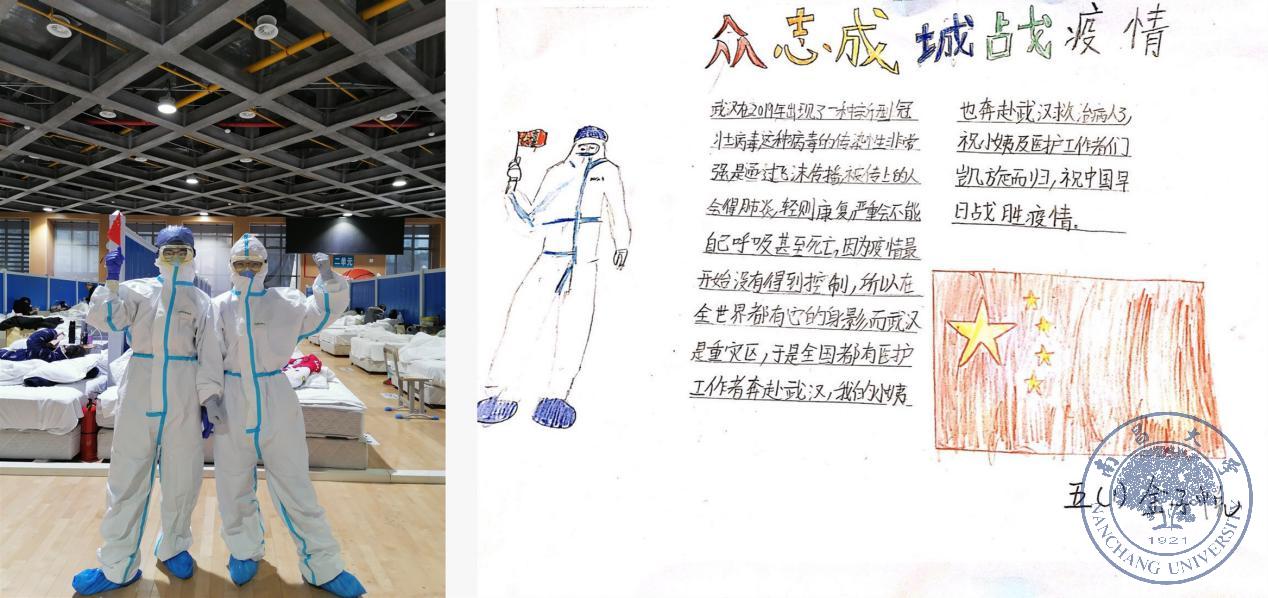 二单元
众志成城战疫情
武汉在2019年出现了一种新型冠
壮病毒这种病毒的传染性非常
强是通过飞沫传播,被传上的人
会得肺炎,轻则康复,严重会不能
自己呼吸甚至死亡,因为疫情最
开始没有得到控制,所以在
全世界都有它的身影而武汉
是重灾区,于是全国都有医护
工作者奔赴武汉,我的小姨
也奔赴武汉救治病人了,
祝小姨及医护工作者们
凯旋而归,祝中国早
日战胜疫情。
五(1)
南昌大学
1921
NANCHANG UNIVERSITY